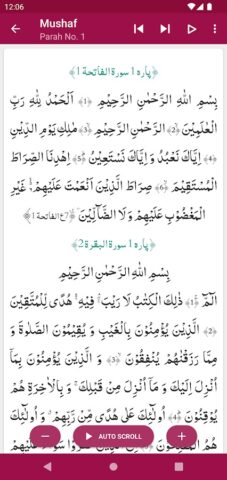 12:06
Mushaf
Parah No. 1
﴿پاره 1 سورة الفاتحة 1﴾
بِسْمِ اللهِ الرَّحْمٰنِ الرَّحِيْمِ ﴿1﴾ اَلْحَمْدُ لِلّٰهِ رَبِّ
الْعٰلَمِيْنَ ﴿2﴾ الرَّحْمٰنِ الرَّحِيْمِ ﴿3﴾ مٰلِكِ يَوْمِ الدِّيْنِ
﴿4﴾ اِيَّاكَ نَعْبُدُ وَ اِيَّاكَ نَسْتَعِيْنُ ﴿5﴾ اِهْدِنَا الصِّرَاطَ
الْمُسْتَقِيْمَ ﴿6﴾ صِرَاطَ الَّذِيْنَ اَنْعَمْتَ عَلَيْهِمْ غَيْرِ
الْمَغْضُوْبِ عَلَيْهِمْ وَ لَا الضَّآلِّيْنَ ﴿7 ع الفاتحة 1﴾
﴿پاره 1 سورة البقرة 2﴾
بِسْمِ اللهِ الرَّحْمٰنِ الرَّحِيْمِ
الٓمّٓ ﴿1﴾ ذٰلِكَ الْكِتٰبُ لَا رَيْبَ فِيْهِ هُدًى لِّلْمُتَّقِيْنَ
﴿2﴾ الَّذِيْنَ يُؤْمِنُوْنَ بِالْغَيْبِ وَ يُقِيْمُوْنَ الصَّلٰوةَ وَ
مِمَّا رَزَقْنٰهُمْ يُنْفِقُوْنَ ﴿3﴾ وَ الَّذِيْنَ يُؤْمِنُوْنَ بِمَآ
اُنْزِلَ اِلَيْكَ وَ مَآ اُنْزِلَ مِنْ قَبْلِكَ وَ بِالْاٰخِرَةِ هُمْ
يُوْقِنُوْنَ ﴿4﴾ اُولٰٓئِكَ عَلٰى هُدًى مِّنْ رَّبِّهِمْ وَ اُولٰٓئِكَ
هُمُ
AUTO SCROLL